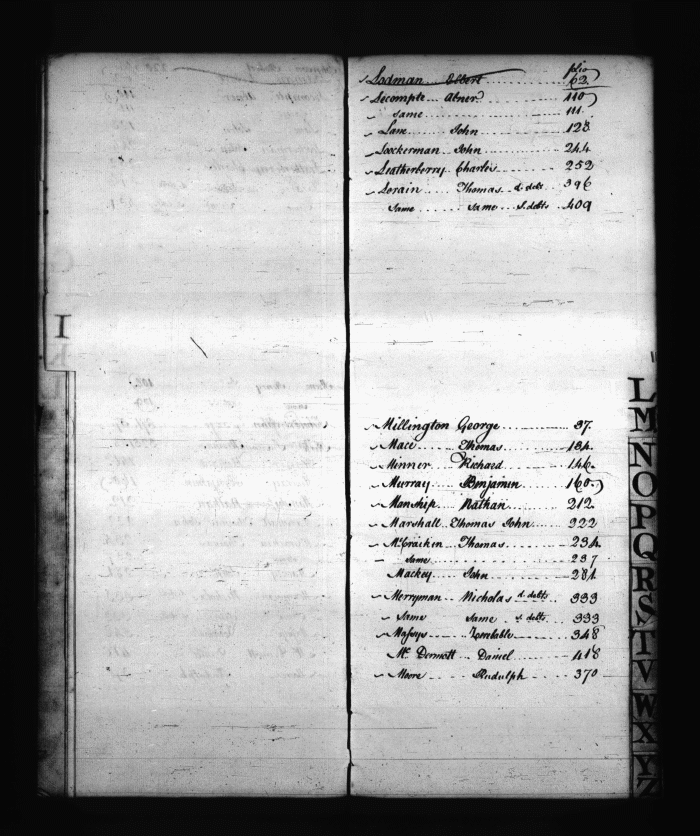 folio
Lodman Elbert 62
Lecompte Abner 110
Same 111
Lane John 128
Loockerman John 244
Leatherberry Charles 252
Lorain Thomas d. debts 396
Same Same s. debts 409
Millington George 37
Mace Thomas 134
Minner Richard 146
Murray Benjamin 160
Manship Nathan 212
Marshall Thomas John 322
McCracken Thomas 234
Same 237
Mackey John 281
Merryman Nicholas d. debts 333
Same Same s. debts 333
Massys 348
Mc Dermott Daniel 418
Moore Rudulph 370
I
K
L
M
N
O
P
Q
R
S
T
V
W
X
Y
Z